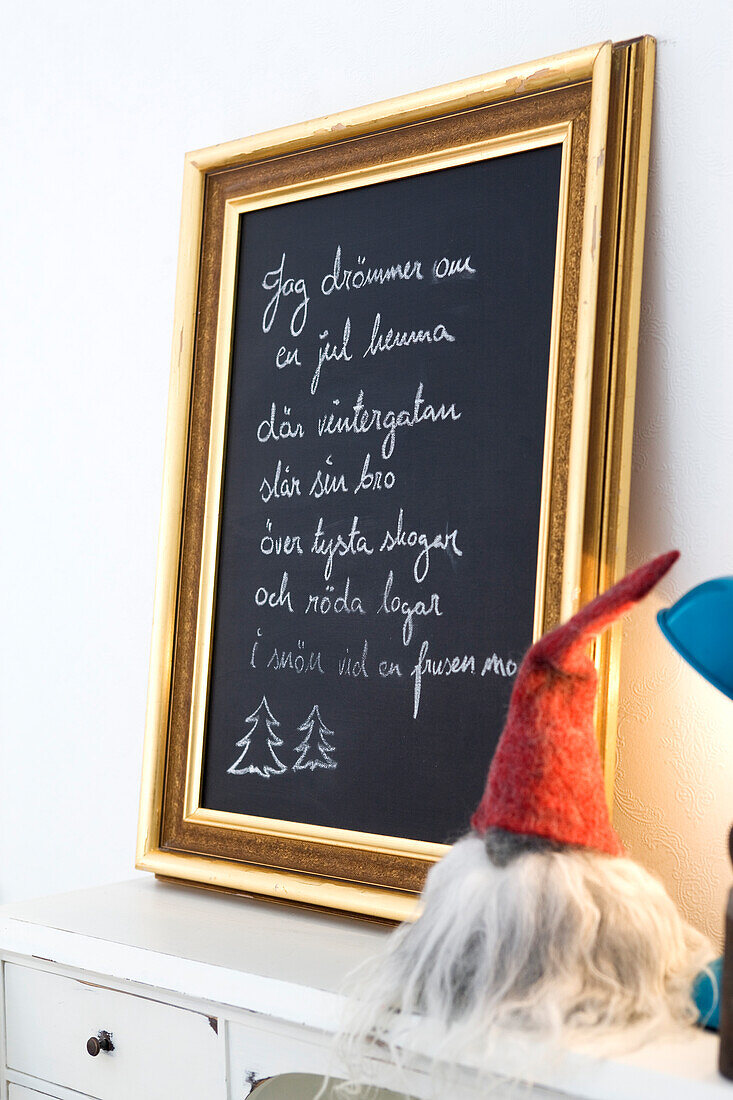 Jag drömmer om
en jul hemma
där vintergatan
slår sin bro
över tysta skogar
och röda logar
i snön vid en frusen mo